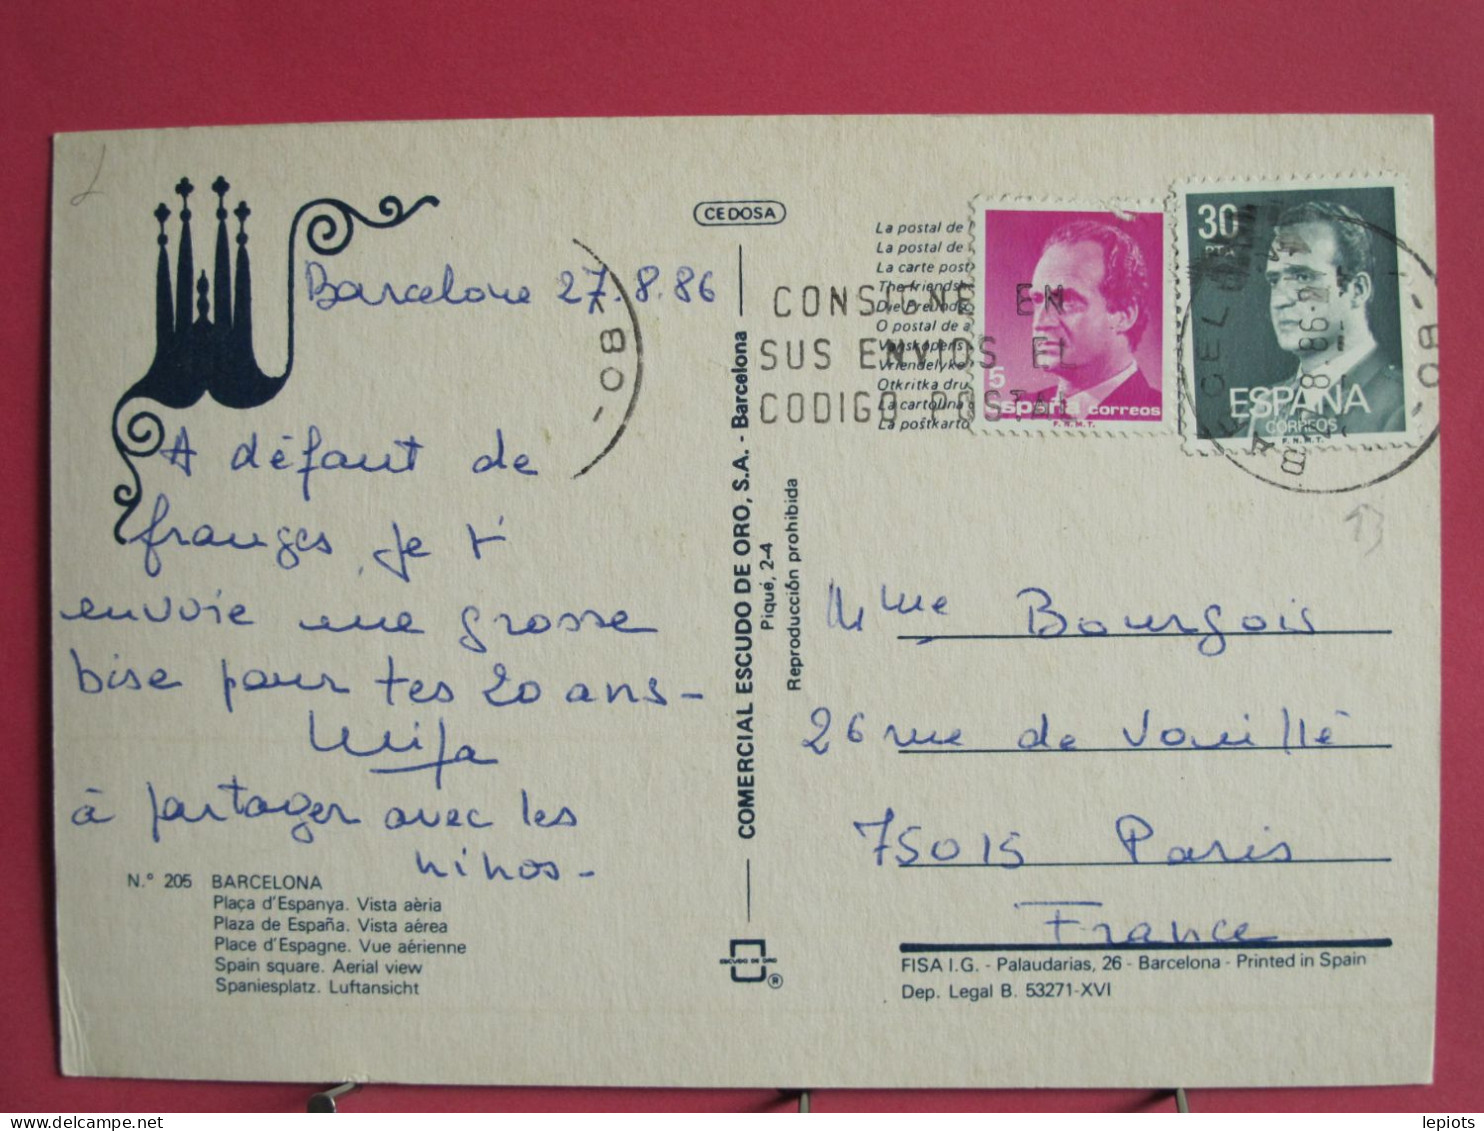 CEDOSA
La postal de
La postal de
La carte post
The friendsh
Die Freunds
O postal de a
Vänskopens
Vriendelyke
Otkritka dru
La cartolina
La poštkarto
CONSIGNE EN
SUS ENVIOS EL
CODIGO POSTAL
5
españa correos
F.N.M.T.
30
PTA
ESPAÑA
CORREOS
F.N.M.T.
-80-
-80-
27.8.86
Barcelone 27.8.86
A défaut de
franges, je t'
envoie une grosse
bise pour tes 20 ans-
à partager avec les
ninos-
N.° 205 BARCELONA
Plaça d'Espanya. Vista aèria
Plaza de España. Vista aérea
Place d'Espagne. Vue aérienne
Spain square. Aerial view
Spaniesplatz. Luftansicht
COMERCIAL ESCUDO DE ORO, S.A. - Barcelona
Piqué, 2-4
Reproducción prohibida
ESCUDO DE ORO
®
Mme Bourgois
26 rue de Vouillé
75015 Paris
France
13
FISA I.G. - Palaudarias, 26 - Barcelona - Printed in Spain
Dep. Legal B. 53271-XVI
lepiots